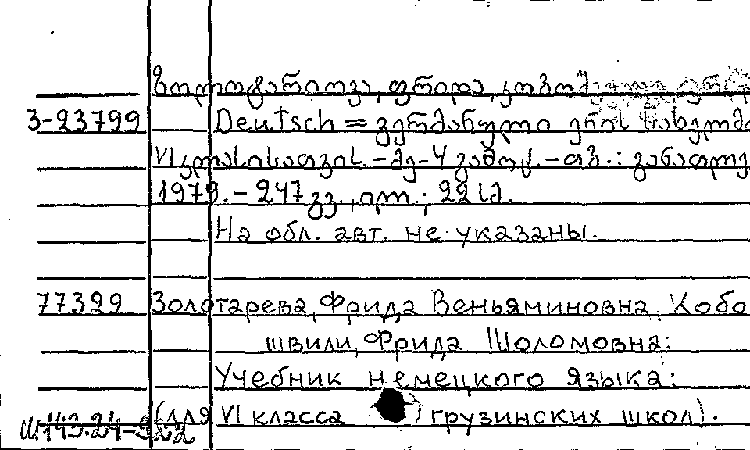 ზოლოტარიოვა, ფრიდა, კობო
3-23799 Deutsch = გერმანული ენის სახელმ
VI კლასისათვის. - მე-4 გამოც. - თბ. : განათლე
1979. - 247 გვ., ილ.; 22 სმ.
На обл. авт. не указаны.
77329 Золотарева, Фрида Веньяминовна, Кобо
швили, Фрида Шоломовна:
Учебник немецкого языка:
(для VI класса грузинских школ).